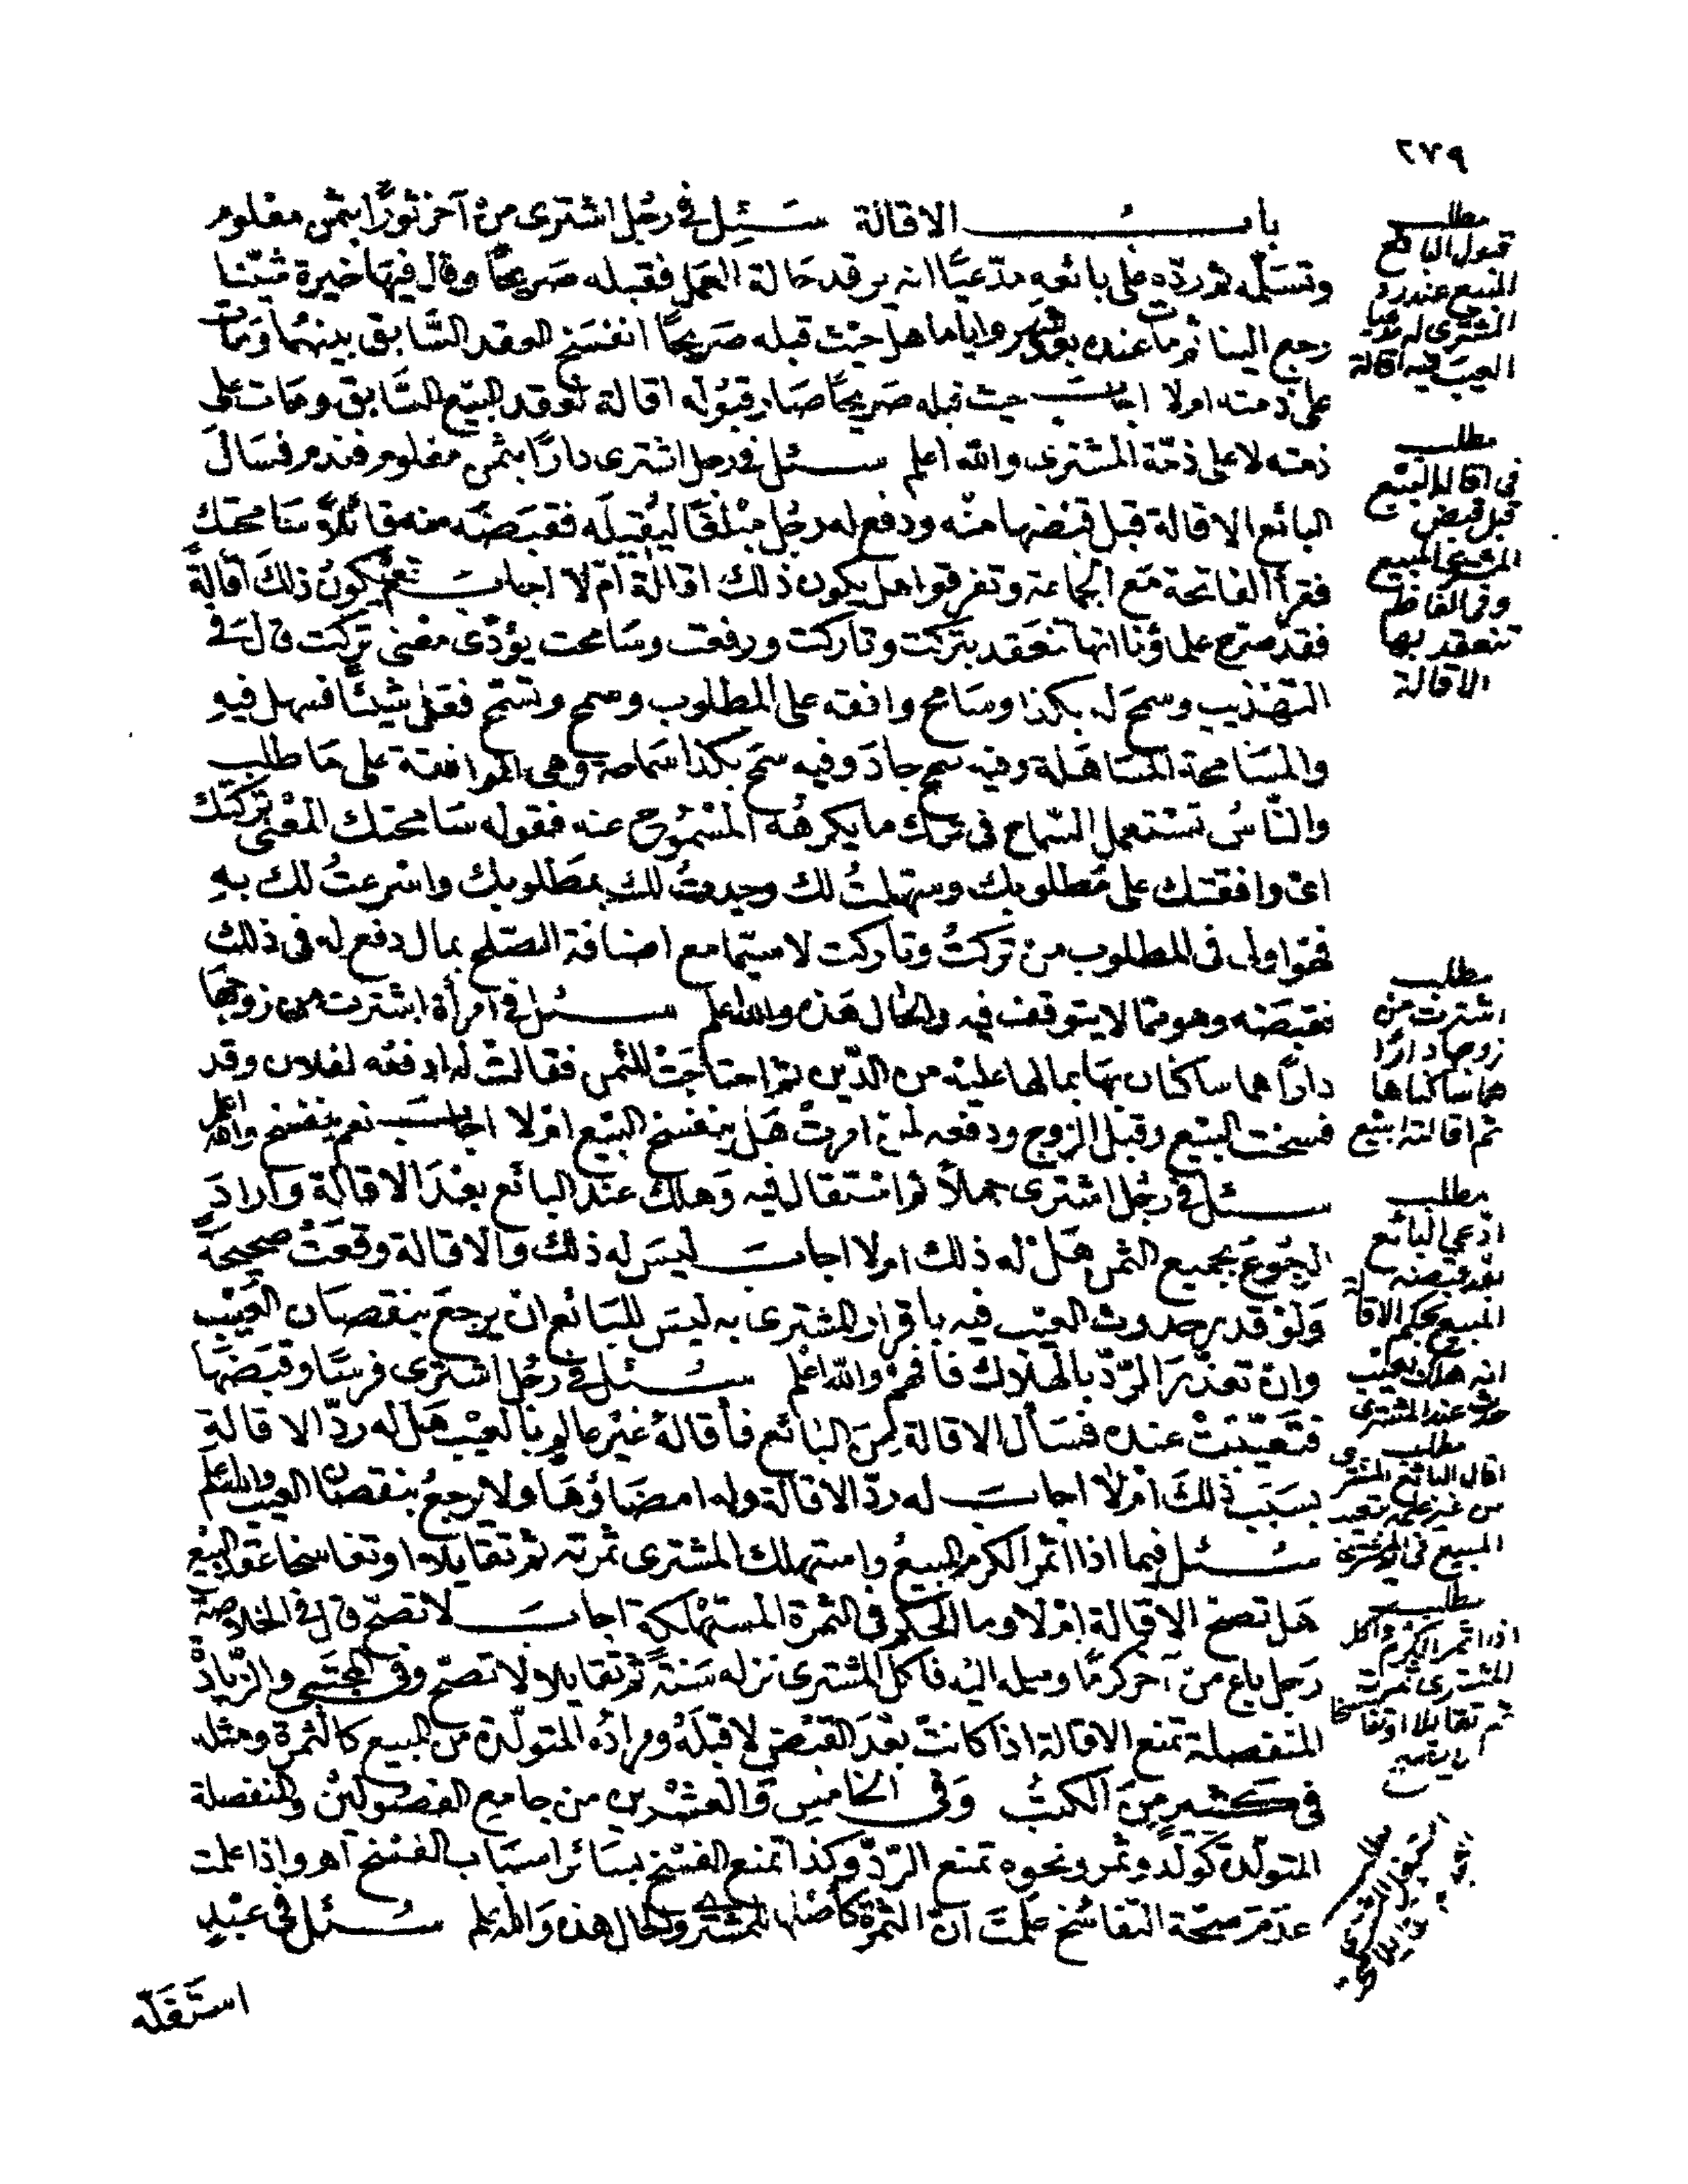 ٢٧٩
باب الاقالة سئل في رجل اشترى من آخر ثورًا بثمن معلوم
وتسلمه ثم ردّه على بائعه مدّعيًا انه يرقد حالة العمل فقبله صريحًا وقال فيها خيرة شيّنا
رجع الينا ثم مات عنده بعد شهر واياما هل حيث قبله صريحًا انفسخ العقد السّابق بينهما ومات
على ذمته ام لا اجاب حيث قبله صريحًا صار قبوله اقالة لعقد البيع السّابق ومات على
ذمته لا على ذمّة المشترى والله اعلم سئل في رجل اشترى دارًا بثمن معلوم فندم فسال
البائع الاقالة قبل قبضها منه ودفع له رجل مبلغًا ليقيله فقبضه منه قائلاً سامحتك
فقرأ الفاتحة مع الجماعة وتفرقوا هل يكون ذلك اقالة ام لا اجاب نعم يكون ذلك اقالةً
فقد صرح علماؤنا انها تنعقد بتركت وتاركت ورفعت وسامحت يؤدّى معنى تركت قال في
التهذيب وسمح له بكذا وسامح وافقه على المطلوب وسمح وتسمّح فعل شيئًا فسهل فيه
والمسامحة المساهلة وفيه سمح جاد وفيه سمح بكذا سماحة وهى الموافقة على ما طلب
والنّاس تستعمل السّماح في ترك ما يكرهه المسموح عنه فقوله سامحتك المعنى تركتك
اى وافقتك على مطلوبك وسهلت لك وجدت لك بمطلوبك واسرعت لك به
فهو اولى في المطلوب من تركت وتاركت لا سيّما مع اضافة الصّلح بمال دفع له في ذلك
فقبضه وهو ممّا لا يتوقف فيه والحال هذه والله اعلم سئل في امرأة اشترت من زوجها
دارًا هما ساكنان بها بمالها عليه من الدّين ثم احتاجت للثمن فقالت له ادفعه لفلان وقد
فسخت البيع وقبل الزوج ودفعه لمن امرت هل ينفسخ البيع ام لا اجاب نعم ينفسخ والله اعلم
سئل في رجل اشترى جملاً ثم استقال فيه وهلك عند البائع بعد الاقالة واراد
الرجوع بجميع الثمن هل له ذلك ام لا اجاب ليس له ذلك والاقالة وقعت صحيحةً
ولو قدر حدوث العيب فيه باقرار المشترى به ليس للبائع ان يرجع بنقصان العيب
وان تعذّر الردّ بالهلاك فافهم والله اعلم سئل في رجل اشترى فرسًا وقبضها
فتعيّبت عنده فسأل الاقالة من البائع فأقاله غير عالم بالعيب هل له ردّ الاقالة
بسبب ذلك ام لا اجاب له ردّ الاقالة وله امضاؤها ولا يرجع بنقصان العيب والله اعلم
سئل فيما اذا اثمر الكرم المبيع واستهلك المشترى ثمرته ثم تقايلا او تفاسخا عقد البيع
هل تصح الاقالة ام لا وما الحكم في الثمرة المستهلكة اجاب لا تصحّ قال في الخلاصة
رجل باع من آخر كرمًا وسلمه اليه فاكل المشترى نزله سنةً ثم تقايلا لا تصحّ وفي المجتبى والزّيادة
المنفصلة تمنع الاقالة اذا كانت بعد القبض لا قبله ومراده المتولّدة من المبيع كالثمرة ومثله
في كثير من الكتب وفي الخامس والعشرين من جامع الفصولين والمنفصلة
المتولّدة كولد وثمر ونحوه تمنع الردّ وكذا تمنع الفسخ بسائر اسباب الفسخ اهـ واذا علمت
عدم صحّة التفاسخ علمت انّ الثمرة كأصلها للمشترى والحال هذه والله اعلم سئل في عبد
استقله
مطلب
قبول البائع
المبيع عند رد
المشترى له مدعيا
العيب فيه اقالة
مطلب
في اقالة البيع
قبل قبض
المشترى المبيع
وفي الفاظ
تنعقد بها
الاقالة
مطلب
اشترت من
زوجها دارًا
هما ساكناها
ثم اقالته البيع
مطلب
ادّعى البائع
بعد قبضه
المبيع بحكم الاقالة
انه هلك بعيب
حدث عند المشترى
مطلب
اقال البائع المشترى
من غير علمه بتعيب
المبيع في يد المشترى
مطلب
اذا اثمر الكرم واكل
المشترى ثمرته
ثم تقايلا او تفاسخا